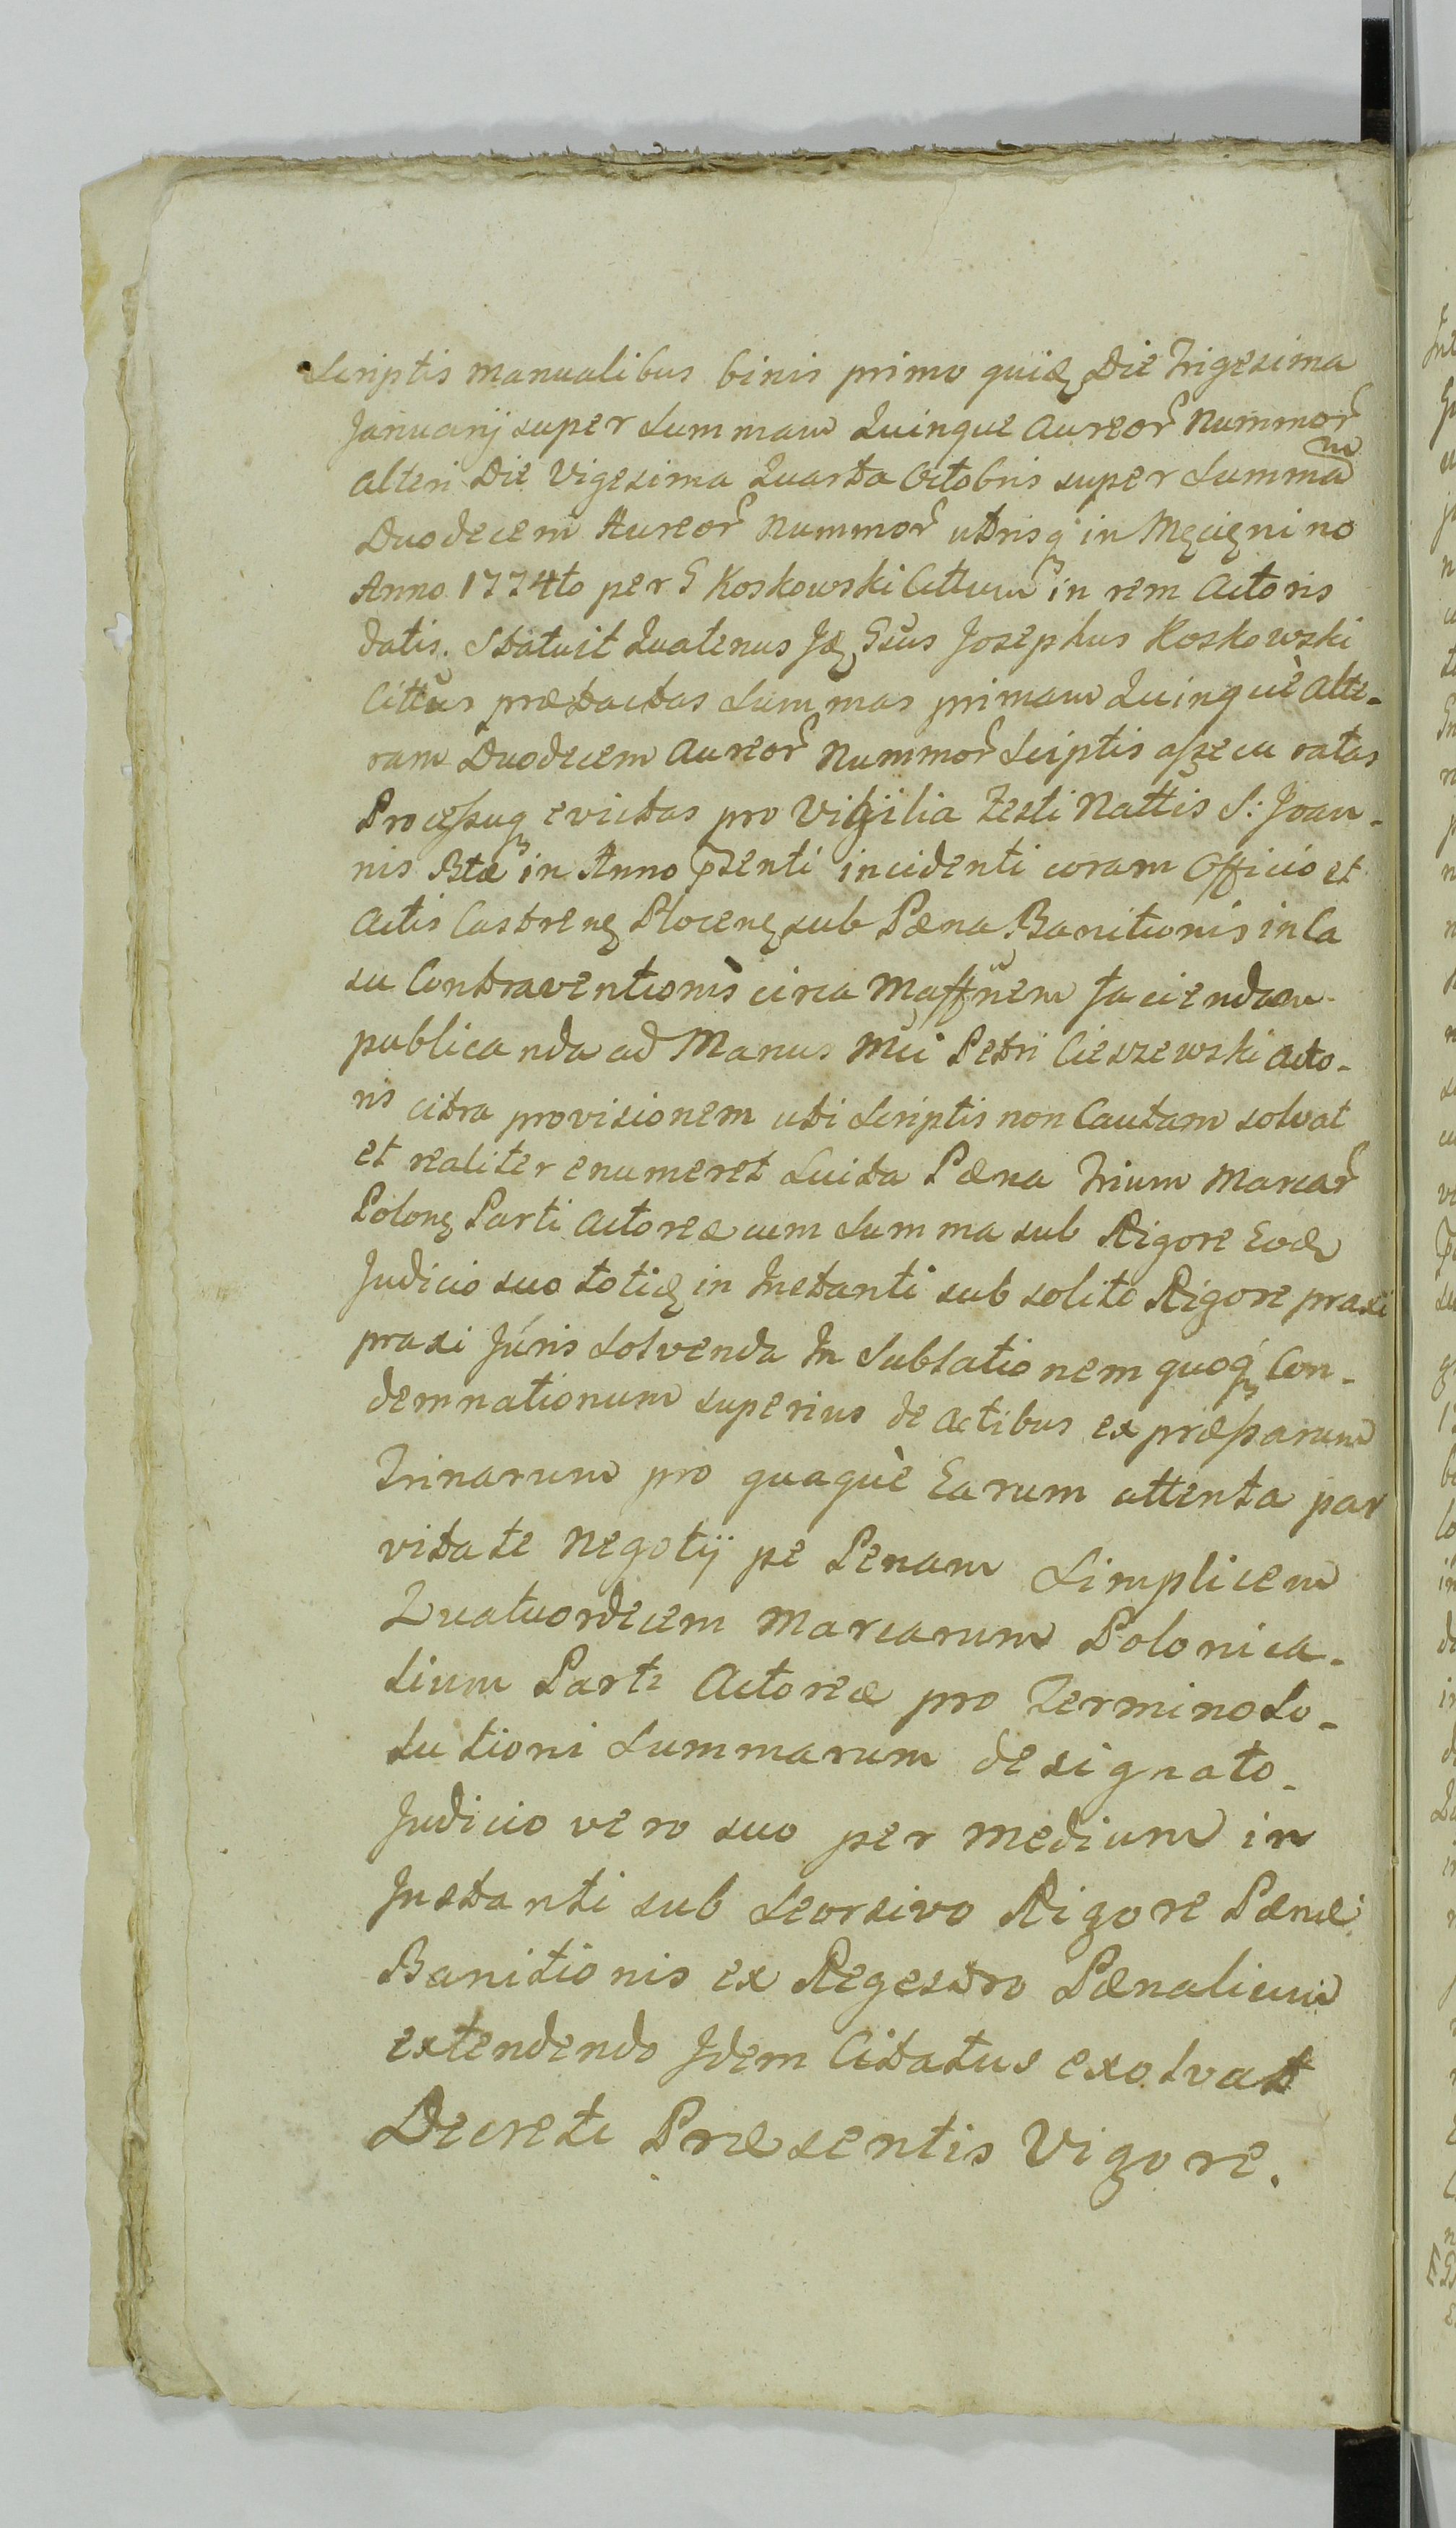 Scriptis manualibus binis primo quidę Die Trigesima
Januarij super Summam Quinque Aureor Nummor
alteri Die Vigesima Quarta Octobris super Summam
Duodecem Aureor Nummor utrisq in
Anno 1774to per G Koskowski Cittum in rem Actoris
datis. Statuit Quatenus Idę Gsus Josephus Koskowski
Cittus prætactas Summas primam Quinquè Alte-
ram Duodecem Aureor Nummor Sciptis assecu ratas
Processuq evictas pro Vigilia Festi Nattis S: Joan-
nis Btæ in Anno pńti incidenti coram Officio et
Actis Castrenę Plocenę sub Pæna Banitionis in Ca
su Contraventionis circa Maffnem faciendam
publicanda ad Manus Mci Petri Cieszewski Acto-
ris citra provisionem uti Scriptis non Cautam solvat
et realiter enumeret Luita Pæna Trium Marcar
Polonę Parti Actoreæ cum Summa sub Rigore Eodę
Judicio suo totidę in Instanti sub solito Rigore praxi
praxi Júris solvenda In Sublationem quoq Con-
demnationum superius de Actibus ex præssarum
Trinarum pro quaquè Earum attenta par
vitate Negotij pe Penam Simplicem
Quatuordecem Marcarum Polonica-
lium Parti Actoreæ pro Termino So-
lutioni Summarum designato-
Judicio vero suo per medium in
Instanti sub Seorsivo Rigore Pænæ
Banitionis ex Regestro Pænalium
extendendo Idem Citatus exolvat
Decreti Præsentis Vigore.